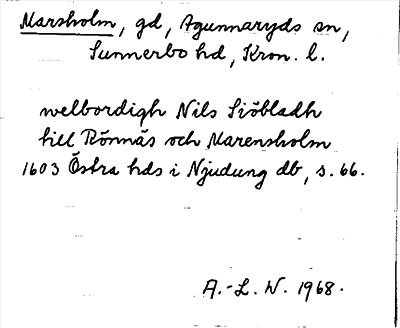 Marsholm, gd, Agunnaryds sn,
Sunnerbo hd, Kron. l.
welbordigh Nils Siöbladh
till Rönnäs och Marensholm
1603 Östra hds i Njudung db, s. 66.
A.-L. W. 1968.